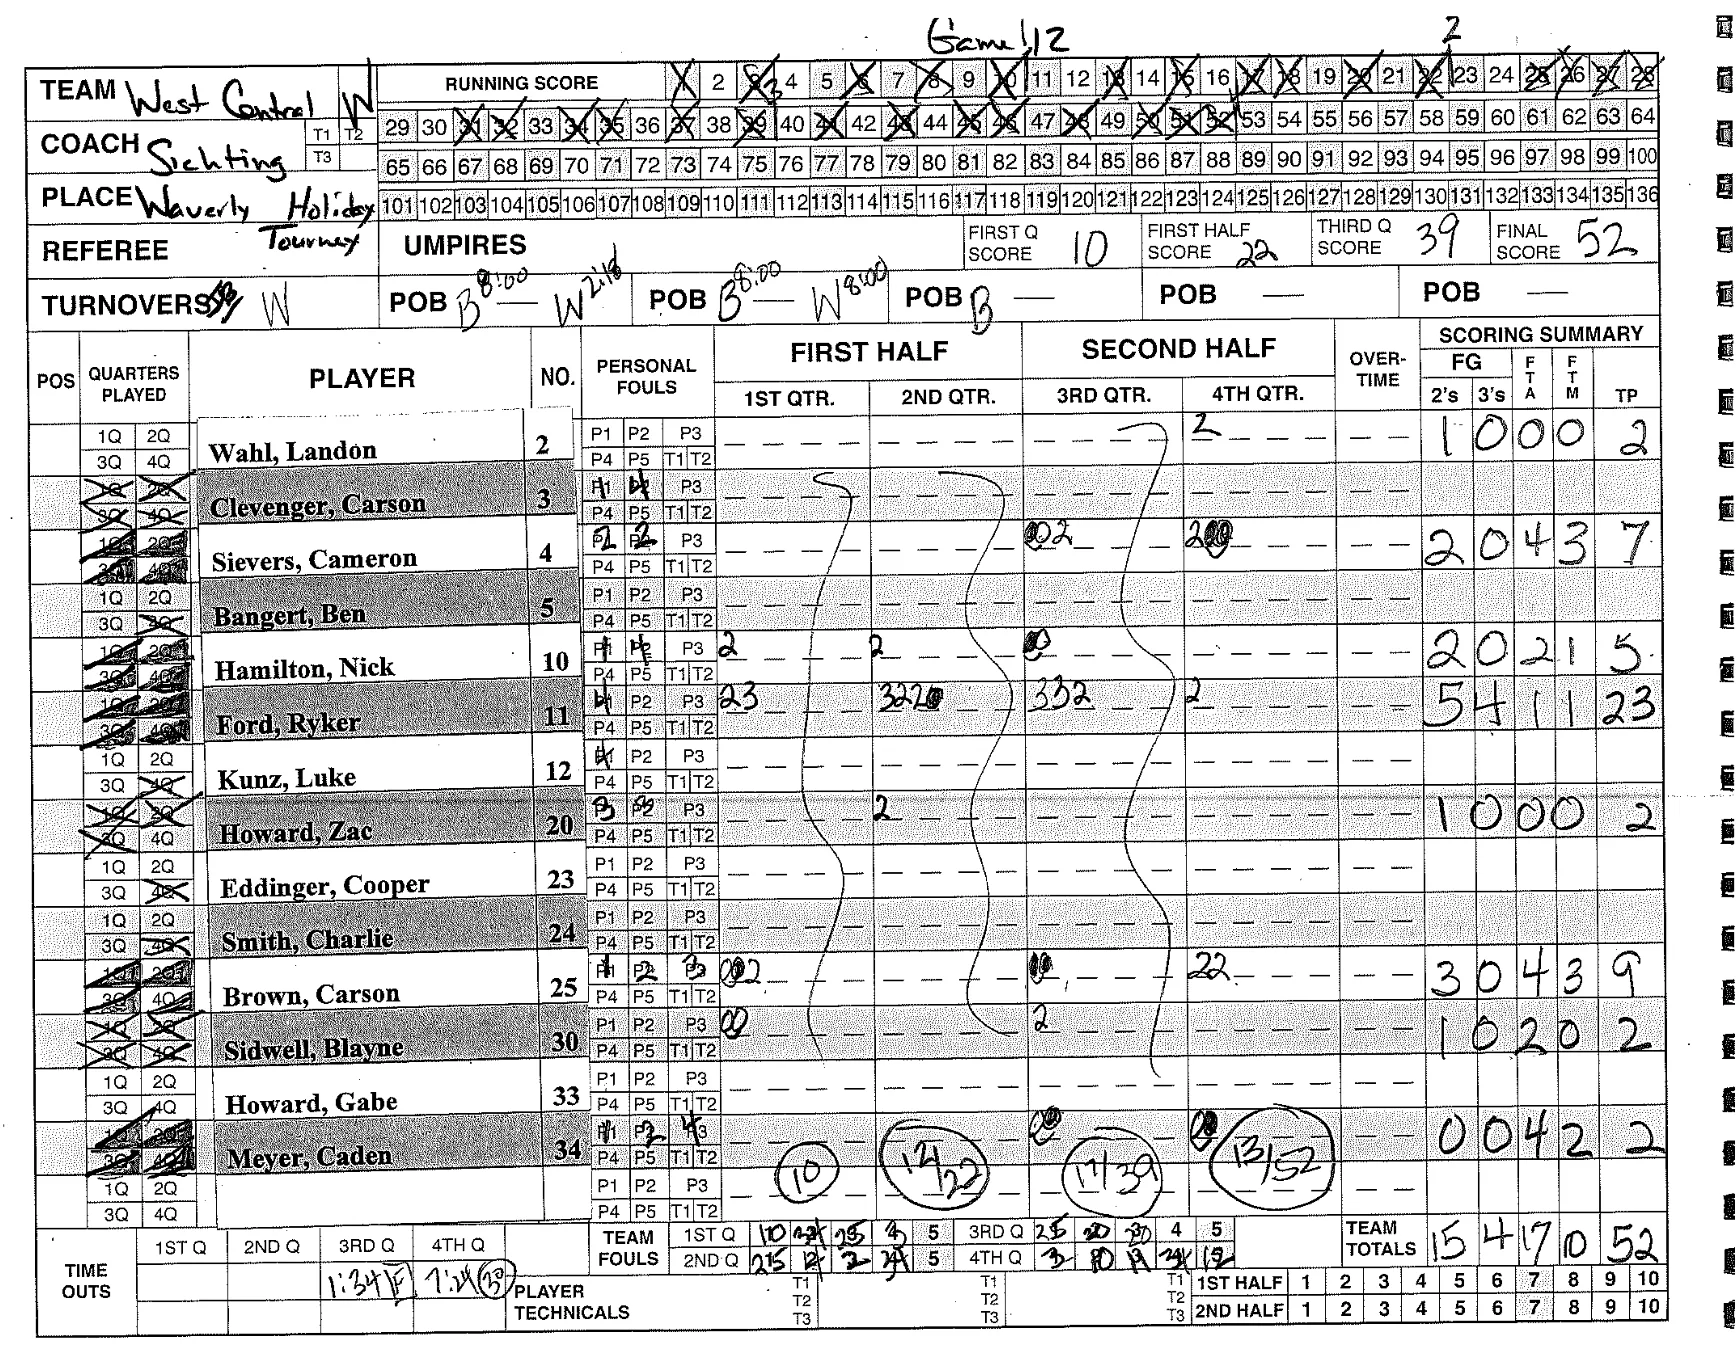 Game 12
2
TEAM West Central W
RUNNING SCORE 1 2 3 4 5 6 7 8 9 10 11 12 13 14 15 16 17 18 19 20 21 22 23 24 25 26 27 28
COACH Sichting T1 T2 T3
29 30 31 32 33 34 35 36 37 38 39 40 41 42 43 44 45 46 47 48 49 50 51 52 53 54 55 56 57 58 59 60 61 62 63 64
65 66 67 68 69 70 71 72 73 74 75 76 77 78 79 80 81 82 83 84 85 86 87 88 89 90 91 92 93 94 95 96 97 98 99 100
PLACE Waverly Holiday Tourney
101 102 103 104 105 106 107 108 109 110 111 112 113 114 115 116 117 118 119 120 121 122 123 124 125 126 127 128 129 130 131 132 133 134 135 136
REFEREE UMPIRES FIRST Q SCORE 10 FIRST HALF SCORE 22 THIRD Q SCORE 39 FINAL SCORE 52
TURNOVERS W POB B 8:00 — W 2:18 POB B 8:00 — W 8:00 POB B — POB — POB —
POS QUARTERS PLAYED PLAYER NO. PERSONAL FOULS FIRST HALF SECOND HALF OVER-TIME SCORING SUMMARY
1ST QTR. 2ND QTR. 3RD QTR. 4TH QTR. FG 2's 3's FTA FTM TP
1Q 2Q 3Q 4Q Wahl, Landon 2 P1 P2 P3 P4 P5 T1 T2 2 1 0 0 0 2
Clevenger, Carson 3 P3 P4 P5 T1 T2
Sievers, Cameron 4 2 2 P3 P4 P5 T1 T2 2 2 2 0 4 3 7
1Q 2Q 3Q Bangert, Ben 5 P1 P2 P3 P4 P5 T1 T2
Hamilton, Nick 10 1 4 P3 P4 P5 T1 T2 2 2 2 0 2 1 5
Ford, Ryker 11 P2 P3 P4 P5 T1 T2 23 322 332 2 5 4 1 1 23
1Q 2Q 3Q Kunz, Luke 12 P2 P3 P4 P5 T1 T2
4Q Howard, Zac 20 3 3 P3 P4 P5 T1 T2 2 1 0 0 0 2
1Q 2Q 3Q Eddinger, Cooper 23 P1 P2 P3 P4 P5 T1 T2
1Q 2Q 3Q Smith, Charlie 24 P1 P2 P3 P4 P5 T1 T2
Brown, Carson 25 1 2 3 P4 P5 T1 T2 2 22 3 0 4 3 9
Sidwell, Blayne 30 P1 P2 P3 P4 P5 T1 T2 2 1 0 2 0 2
1Q 2Q 3Q 4Q Howard, Gabe 33 P1 P2 P3 P4 P5 T1 T2
Meyer, Caden 34 1 2 4 P4 P5 T1 T2 0 0 4 2 2
1Q 2Q 3Q 4Q P1 P2 P3 P4 P5 T1 T2 10 12/22 17/39 13/52
TIME OUTS 1ST Q 2ND Q 3RD Q 4TH Q
1:34 F 7:24 30
TEAM FOULS 1ST Q 5 3RD Q 4 5
2ND Q 5 4TH Q
TEAM TOTALS 15 4 17 10 52
PLAYER TECHNICALS T1 T2 T3 T1 T2 T3 T1 T2 T3
1ST HALF 1 2 3 4 5 6 7 8 9 10
2ND HALF 1 2 3 4 5 6 7 8 9 10